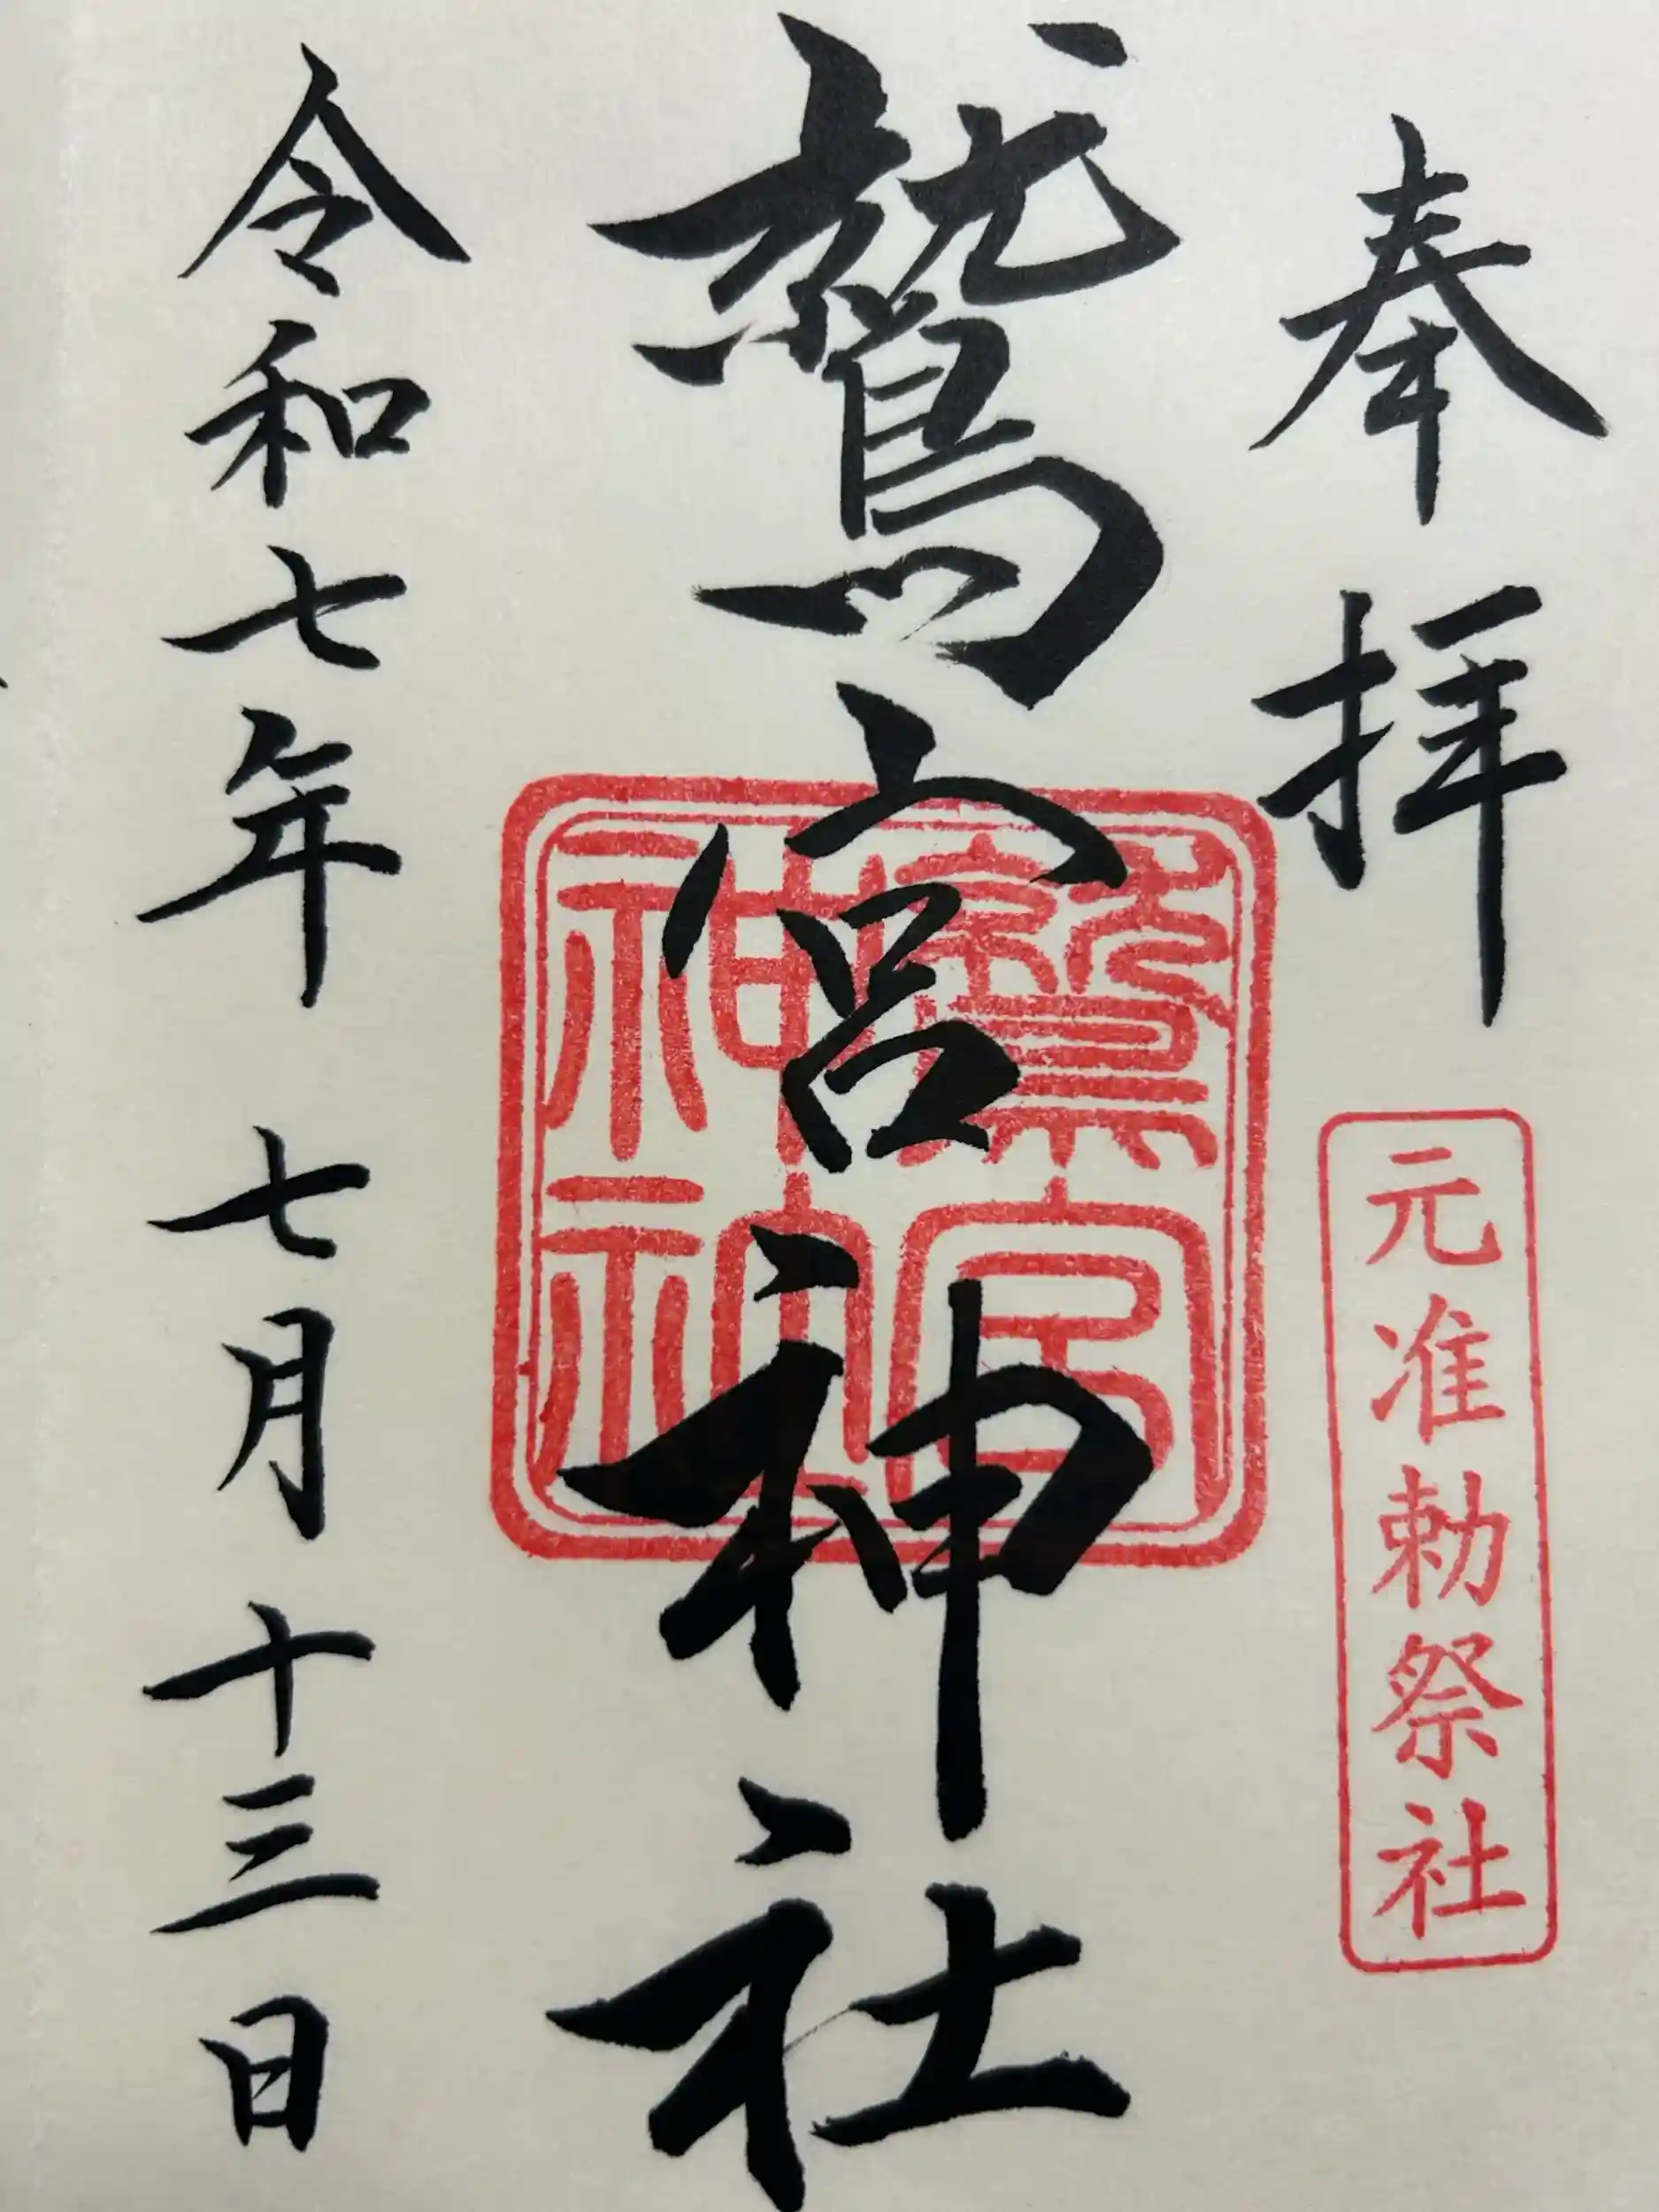 奉拝
元准勅祭社
鷲宮神社
鷲宮神社
令和七年 七月 十三日